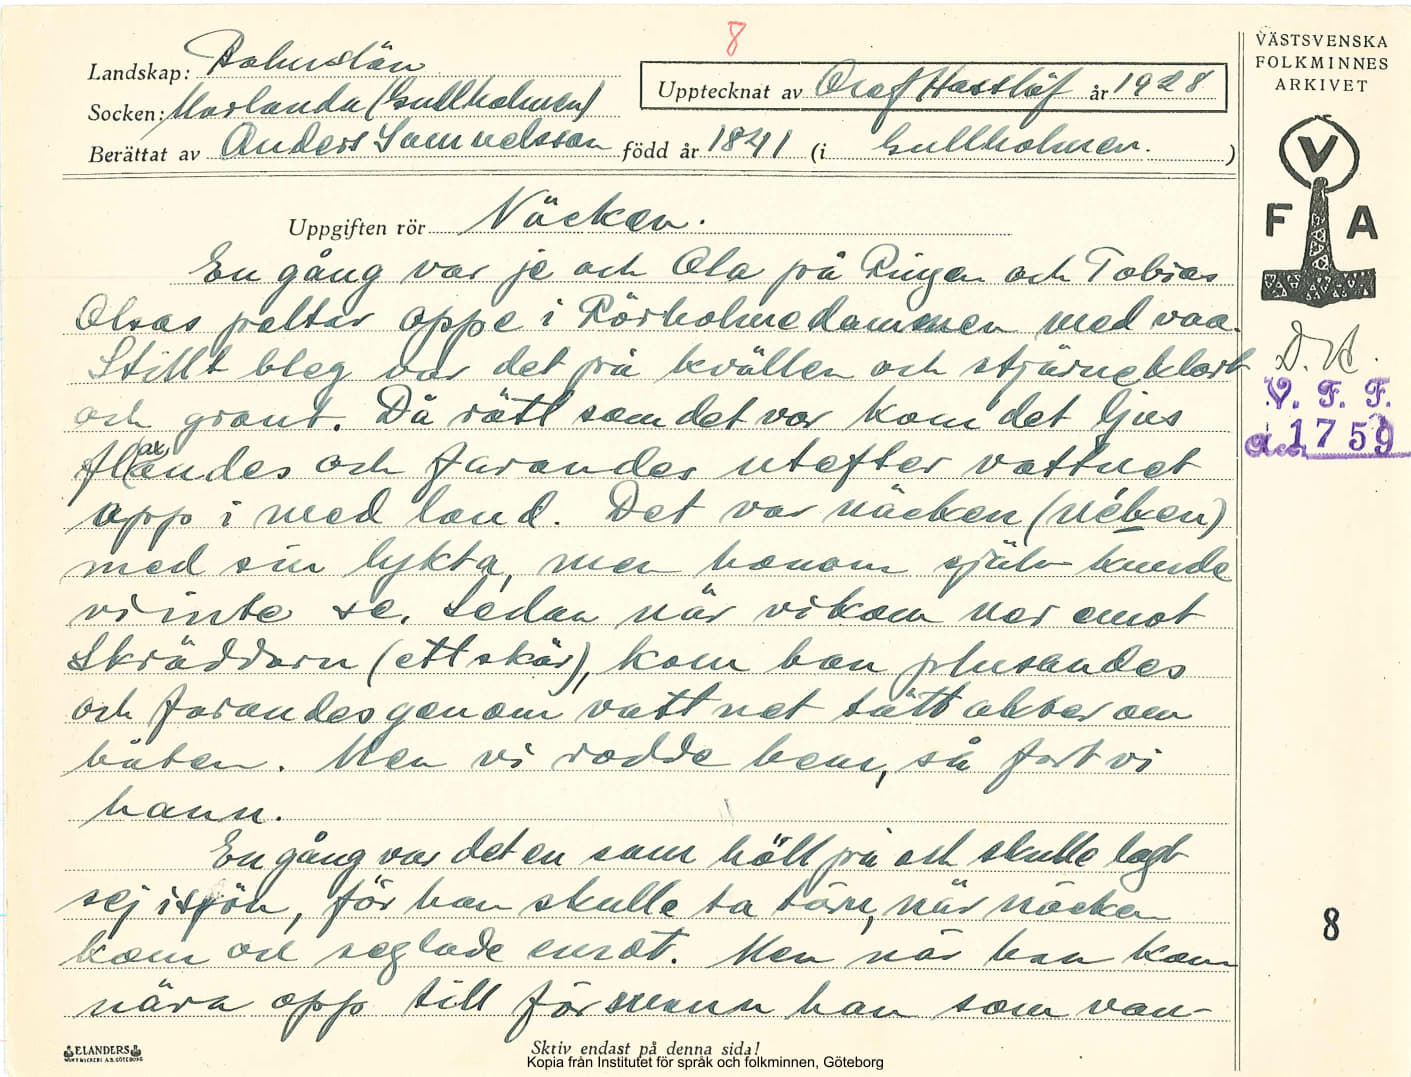 8
Landskap: Bohuslän
Socken: Morlanda (Gullholmen)
Berättat av Anders Samuelsson född år 1841 (i Gullholmen. )
Upptecknat av Olof Hasslöf år 1928
VÄSTSVENSKA
FOLKMINNES
ARKIVET
V
F A
Uppgiften rör Näcken.
En gång var je och Ola på Ringen och Tobias
Olsas peltar oppe i Rörholmedammen med vaa.
Stillt bleg var det på kvällen och stjärneklart
och grant. Då rätt som det var kom det ljus
fl(ax)andes och farandes utefter vattnet
opp i med land. Det var näcken (néken)
med sin lykta, men honom själv kunde
vi inte se. Sedan när vi kom ner emot
Skräddarn (ett skär), kom han plusandes
och farandes genom vattnet tätt akter om
båten. Men vi rodde hem, så fort vi
hann.
En gång var det en som höll på och skulle lagt
sej i sjön, för han skulle ta törn, när näcken
kom och seglade emot. Men när han kom
nära opp till förmann han som van-
V. F. F.
1759
8
ELANDERS
Skriv endast på denna sida!
Kopia från Institutet för språk och folkminnen, Göteborg